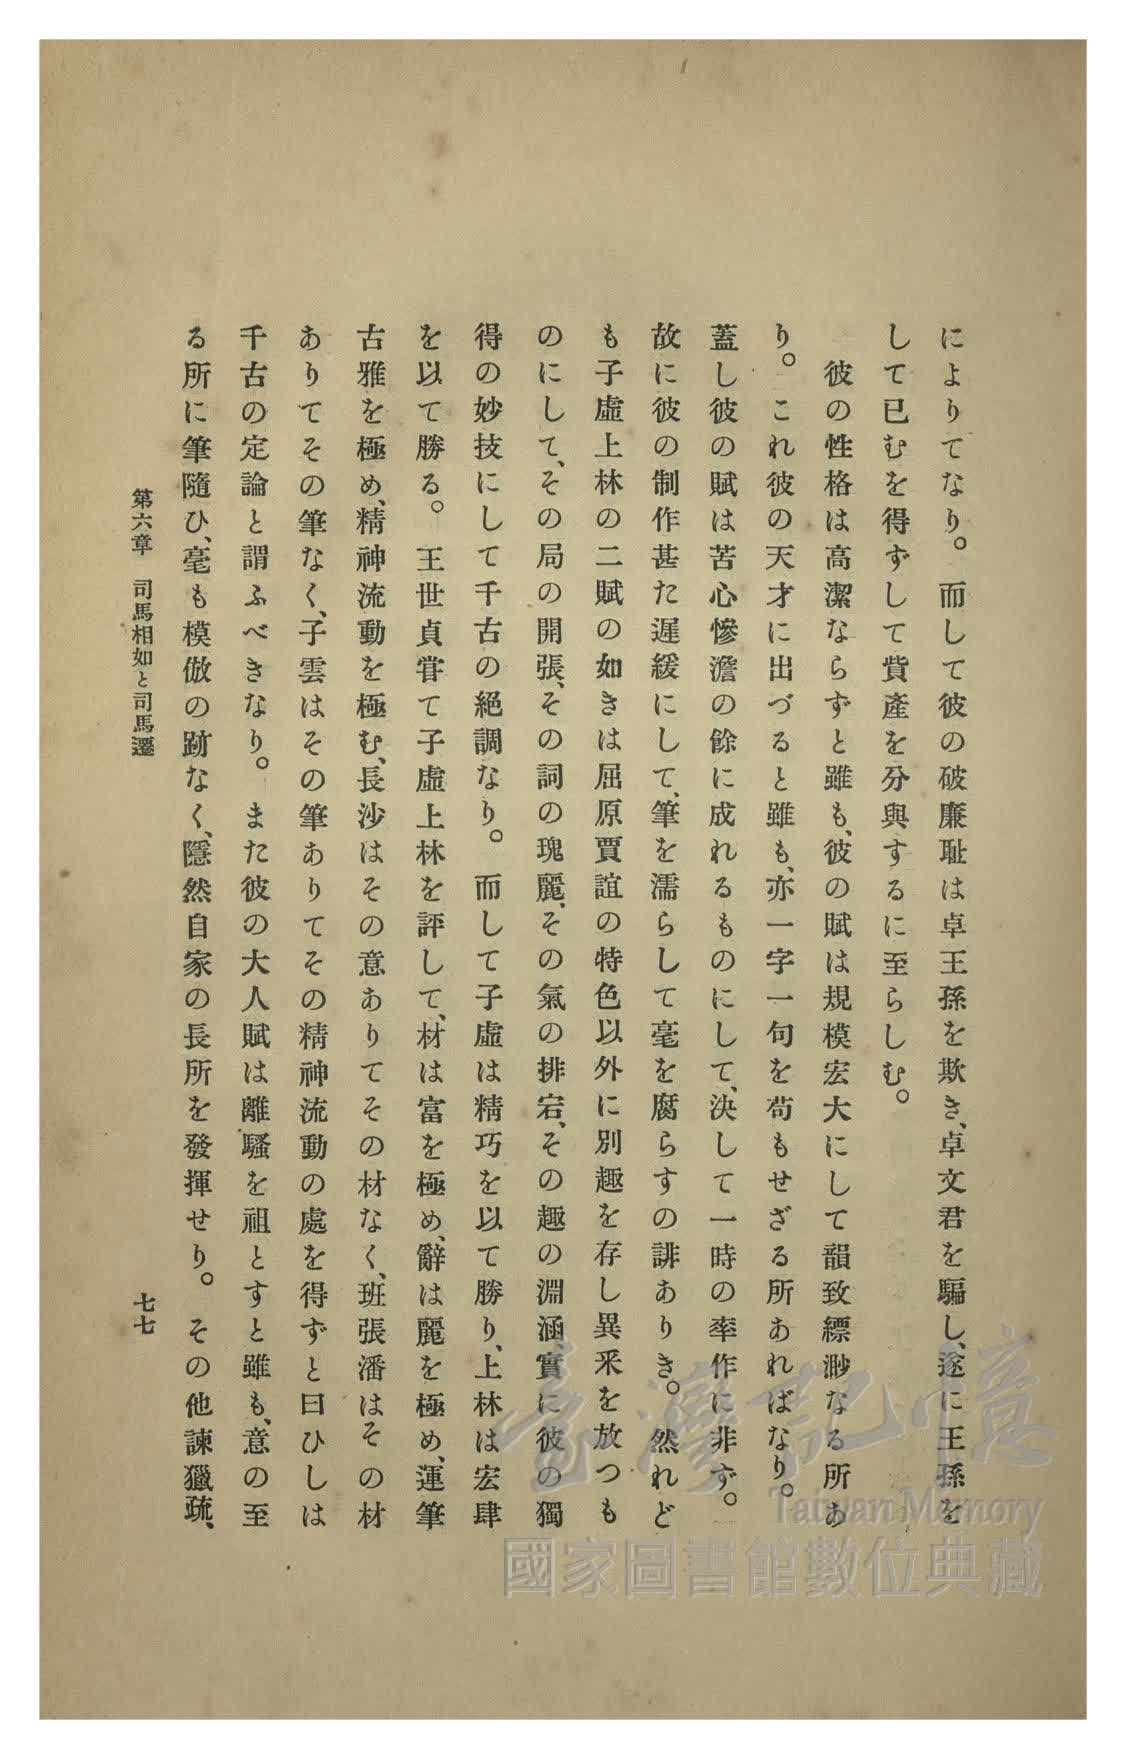 によりてなり。而して彼の破廉耻は卓王孫を欺き、卓文君を騙し、遂に王孫を
して已むを得ずして貲產を分與するに至らしむ。
彼の性格は高潔ならずと雖も、彼の賦は規模宏大にして韻致縹渺なる所あ
り。これ彼の天才に出づると雖も、亦一字一句を苟もせざる所あればなり。
蓋し彼の賦は苦心慘澹の餘に成れるものにして、決して一時の率作に非ず。
故に彼の制作甚た遲緩にして、筆を濡らして毫を腐らすの誹ありき。然れど
も子虛上林の二賦の如きは屈原賈誼の特色以外に別趣を存し異釆を放つも
のにして、その局の開張、その詞の瑰麗、その氣の排宕、その趣の淵涵、實に彼の獨
得の妙技にして千古の絕調なり。而して子虛は精巧を以て勝り、上林は宏肆
を以て勝る。王世貞甞て子虛上林を評して、材は富を極め、辭は麗を極め、運筆
古雅を極め、精神流動を極む、長沙はその意ありてその材なく、班張潘はその材
ありてその筆なく、子雲はその筆ありてその精神流動の處を得ずと曰ひしは
千古の定論と謂ふべきなり。また彼の大人賦は離騷を祖とすと雖も、意の至
る所に筆隨ひ、毫も模倣の跡なく、隱然自家の長所を發揮せり。その他諫獵疏、
第六章 司馬相如と司馬遷
七七
臺灣記憶
Taiwan Memory
國家圖書館數位典藏